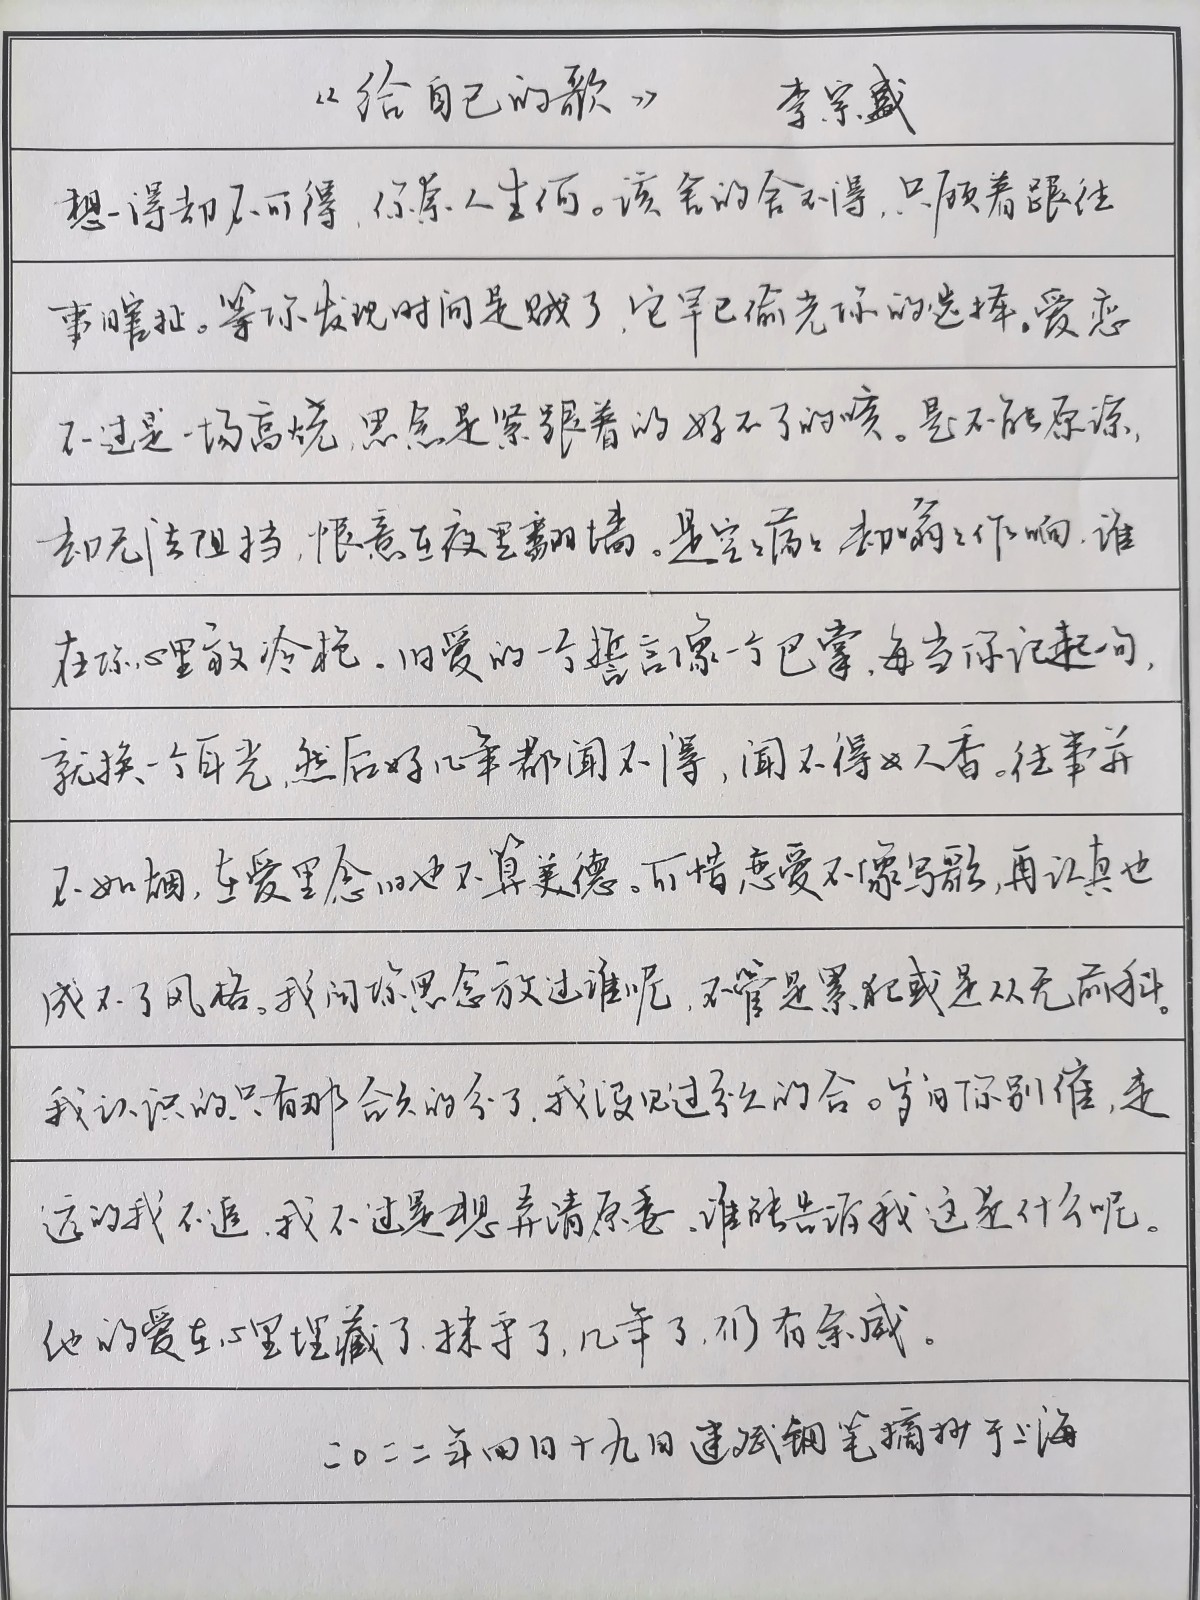 《给自己的歌》 李宗盛
想得却不可得，你奈人生何。该舍的舍不得，只顾着跟往
事瞎扯。等你发现时间是贼了，它早已偷光你的选择。爱恋
不过是一场高烧，思念是紧跟着的好不了的咳。是不能原谅，
却无法阻挡，恨意在夜里翻墙。是空空荡荡却嗡嗡作响，谁
在你心里放冷枪。旧爱的一个誓言像一个巴掌，每当你记起一句，
就换一个耳光，然后好几年都闻不得，闻不得女人香。往事并
不如烟，在爱里念旧也不算美德。可惜恋爱不像写歌，再认真也
成不了风格。我问你思念放过谁呢，不管是累犯或是从无前科。
我认识的只有那合久的分了，我没见过分久的合。岁月你别催，走
远的我不追，我不过是想弄清原委。谁能告诉我这是什么呢。
他的爱在心里埋藏了，抹平了，几年了，仍有余威。
二〇二二年四月十九日建斌钢笔摘抄于上海